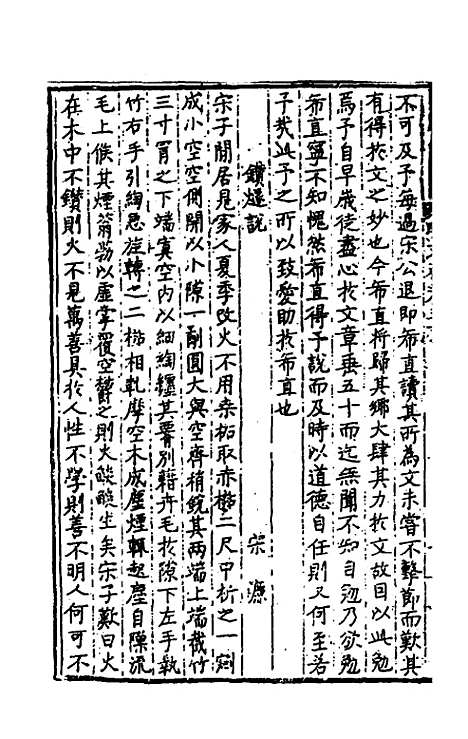 不可及予每過宋公退即希直讀其所為文未嘗不擊節而歎其
有得於文之妙也今希直将歸其鄉大肆其力於文故因以此勉
焉予自早歲徒盡心於文章垂五十而迄無聞不知自勉乃欲勉
希直寧不知愧然希直得予說而及時以道德自任則又何至若
子哉此予之所以致愛助於希直也
鑽燧說 宋濂
宋子閒居見家人夏季改火不用桑柘取赤檜二尺中析之一剜
成小空空側開以小隙一剮圓大與空齊稍銳其兩端上端截竹
三寸冐之下端寘空内以細綯纏其要别藉卉毛於隙下左手執
竹右手引綯急旋轉之二檜相軋摩空木成塵煙輒起塵自隙流
毛上候其煙蓊勃以虚掌覆空鬱之則火燄燄生矣宋子歎曰火
在木中不鑽則火不見萬善具於人性不學則善不明人何可不